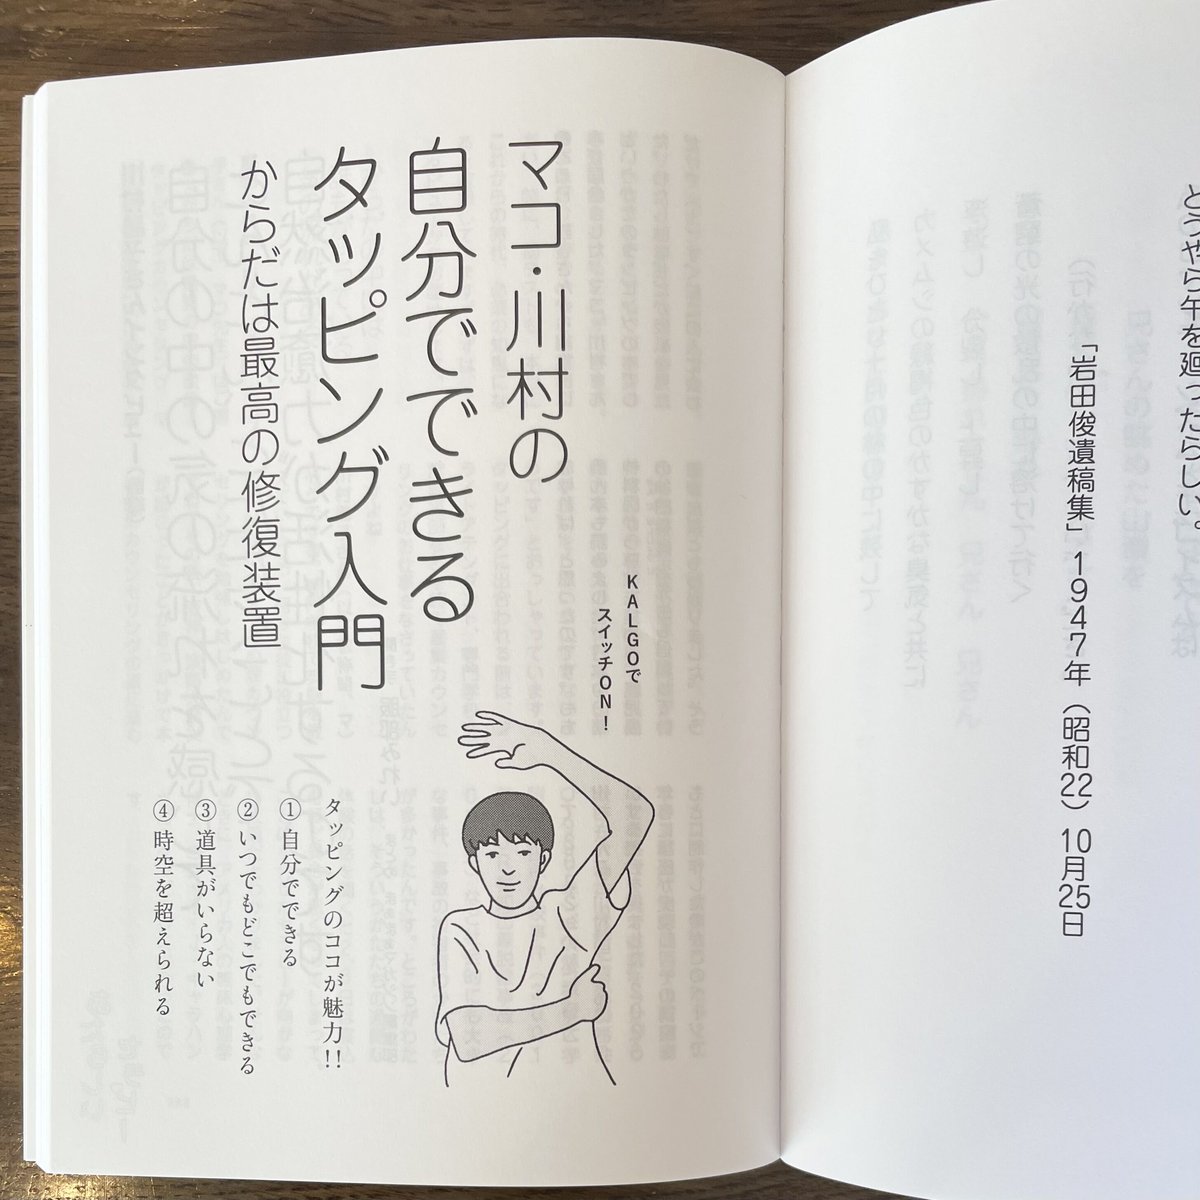 どうやら午を廻ったらしい。
「岩田俊遺稿集」 1947年(昭和22)10月25日
マコ・川村の
自分でできる
タッピング入門
からだは最高の修復装置
KALGOで
スイッチON!
タッピングのココが魅力!!
①自分でできる
②いつでもどこでもできる
③道具がいらない
④時空を超えられる